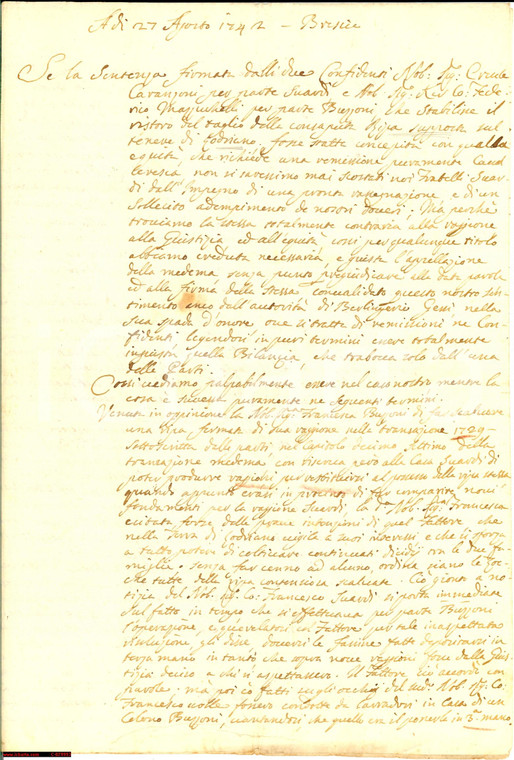 Adi 27 Agosto 1742 - Brescia
Se la Sentenza firmata dalli due Confidenti Nob: Sig:
per parte Suardi e Nob Sig: Co: Fede-
rico Mazuchelli per parte Buzzoni, che stabilisce il
ristoro del taglio della consaputa Ripa supposta sul
tenere di Godriano, fosse stata concepita con quella
equità, che richiede una remissione puramente Caval
leresca non si saressimo mai scostati noi Fratelli Suar-
di dall'impegno di una pronta rassegnazione e di un
sollecito adempimento de nostri doveri: Ma perche
trouiamo la stessa totalmente contraria alla ragione
alla Giustizia ed all'equità, così per qualunque titolo
abbiamo creduta necessaria, e giusta l'apellazione
della medema senza punto pregiudicare alla data parola
ed alla firma della stessa conualidato questo nostro sen-
timento anco dall'autorità di Berlingerio Gessi nella
sua spada d'onore oue si tratta di remissioni ne Con-
fidenti, leggendosi in puri termini essere totalmente
ingiusta quella Bilancia, che trabocca solo dall'una
delle Parti.
Così uediamo palpabilmente essere nel caso nostro mentre la
cosa è successa puramente ne seguenti termini.
Venuta in opinione la Nob. Sig.ra Francesca Buzzoni di far scaluare
una Ripa, fermata di sua ragione nella transazione 1729 -
Sottoscritta dalle parti, nel capitolo decimo ultimo della
transazione medema con riserva però alla Casa Suardi di
poter produrre ragioni per restituirsi al possesso della ripa stessa
quando appunto erasi in procinto di far comparire noui
fondamenti per la ragione Suardi, la d.a Nob: Sig.ra Francesca
eccitata forse dalle praue intenzioni di quel Fattore che
nella Terra di Godriano uigila a suoi interessi e che si sforza
a tutto potere di coltiuare continuati dissidi tra le due fa-
miglie. Senza far cenno ad alcuno, ordina siano le Zoc-
che tutte della ripa contenziosa scaluate. Ciò gionto a no-
tizia del Nob: Sig: Co: Francesco Suardi si porta immediate
sul fatto in tempo che si effettuaua per parte Buzzoni
l'operazione, e queuelatosi col Fattore per tale inaspettata
risoluzione, gli disse douersi le fassine fatte depositarsi in
terza mano in tanto che sopra noue ragioni fosse dalla Gius-
tizia deciso a chi si aspettassero. Il Fattore ciò accordò con
parole; ma poi co fatti sugli occhi del med.o Nob. Sig: Co:
Francesco uolle fossero condotte da lauradori in Casa di un
Colono Buzzoni, uantandosi che quello era il ponerle in 3.a mano.